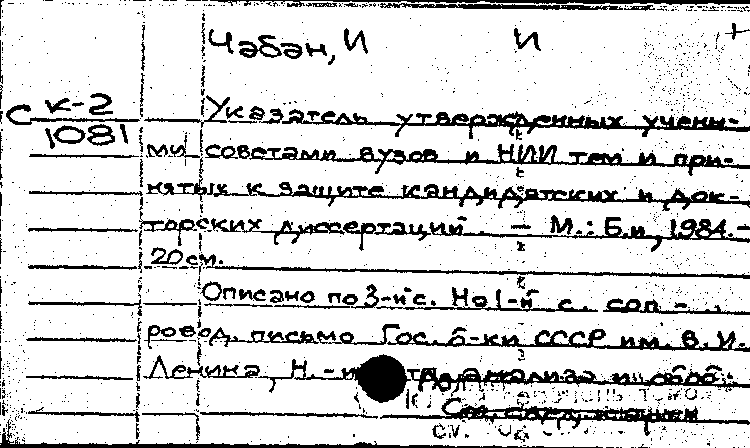 Чабан, И И
С К-2
1081
Указатель утвержденных учены-
ми советами вузов и НИИ тем и при-
нятых к защите кандидатских и док-
торских диссертаций. — М.: Б.и, 1984.-
20см.
Описано по 3-й с. На 1-й с. соп-
ровод. письмо Гос. б-ки СССР им. В. И.
Ленина, Н.-и анализа и
См.
см.